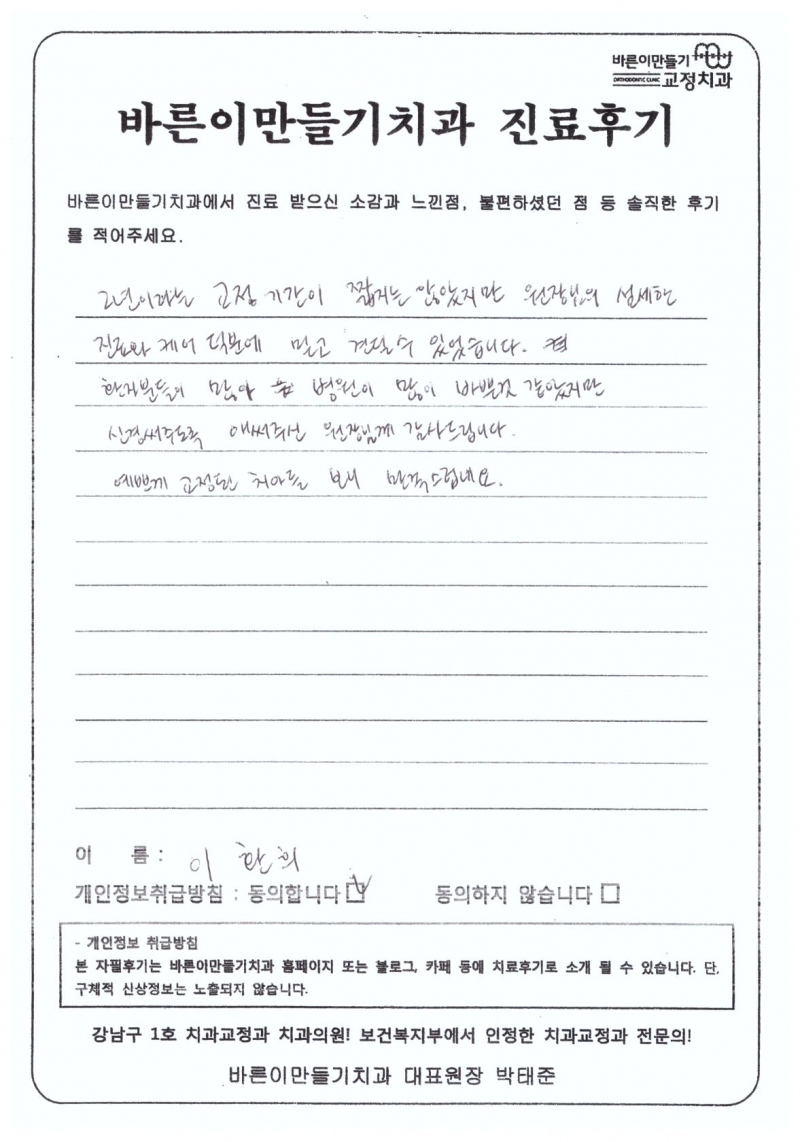 바른이만들기
ORTHODONTIC CLINIC 교정치과
바른이만들기치과 진료후기
바른이만들기치과에서 진료 받으신 소감과 느낀점, 불편하셨던 점 등 솔직한 후기
를 적어주세요.
2년이라는 교정 기간이 짧지는 않았지만 원장님의 섬세한
진료와 케어 덕분에 믿고 견딜수 있었습니다.
환자분들이 많아 병원이 많이 바쁜것 같았지만
신경써주도록 애써주신 원장님께 감사드립니다.
예쁘게 교정된 치아를 보니 만족스럽네요.
이 름 : 이 환희
개인정보취급방침 : 동의합니다 동의하지 않습니다
- 개인정보 취급방침
본 자필후기는 바른이만들기치과 홈페이지 또는 블로그, 카페 등에 치료후기로 소개 될 수 있습니다. 단,
구체적 신상정보는 노출되지 않습니다.
강남구 1호 치과교정과 치과의원! 보건복지부에서 인정한 치과교정과 전문의!
바른이만들기치과 대표원장 박태준